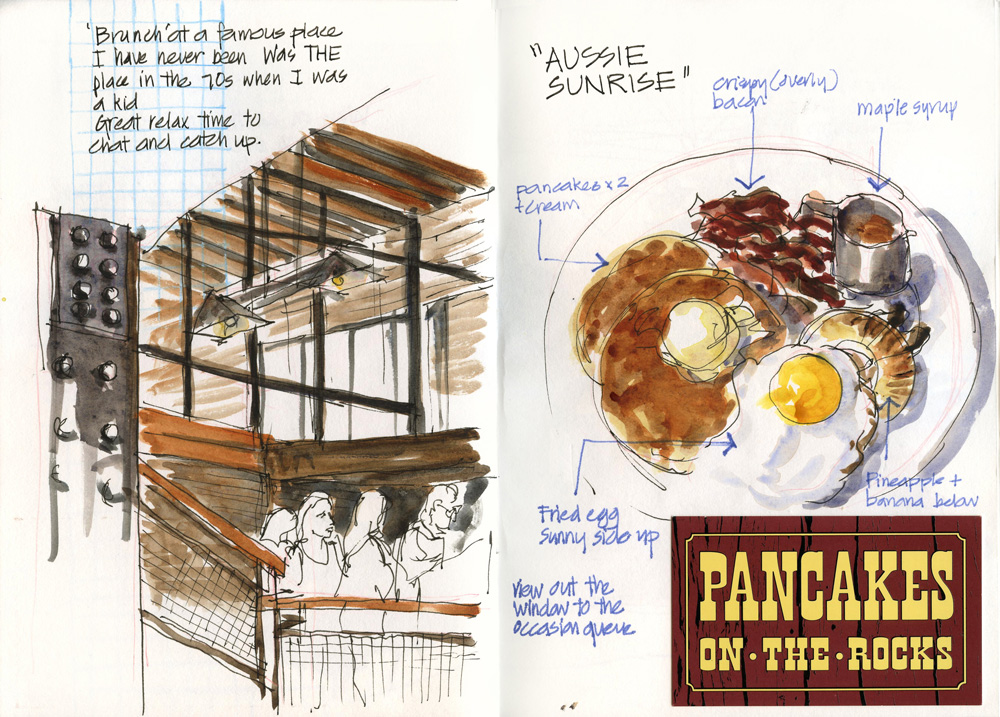 'Brunch' at a famous place
I have never been Was THE
place in the 70s when I was
a kid
Great relax time to
chat and catch up.
"AUSSIE
SUNRISE"
crispy (overly)
bacon
maple syrup
pancakes x 2
+ cream
Fried egg
sunny side up
Pineapple +
banana below
view out the
window to the
occasion queue
PANCAKES
ON · THE · ROCKS